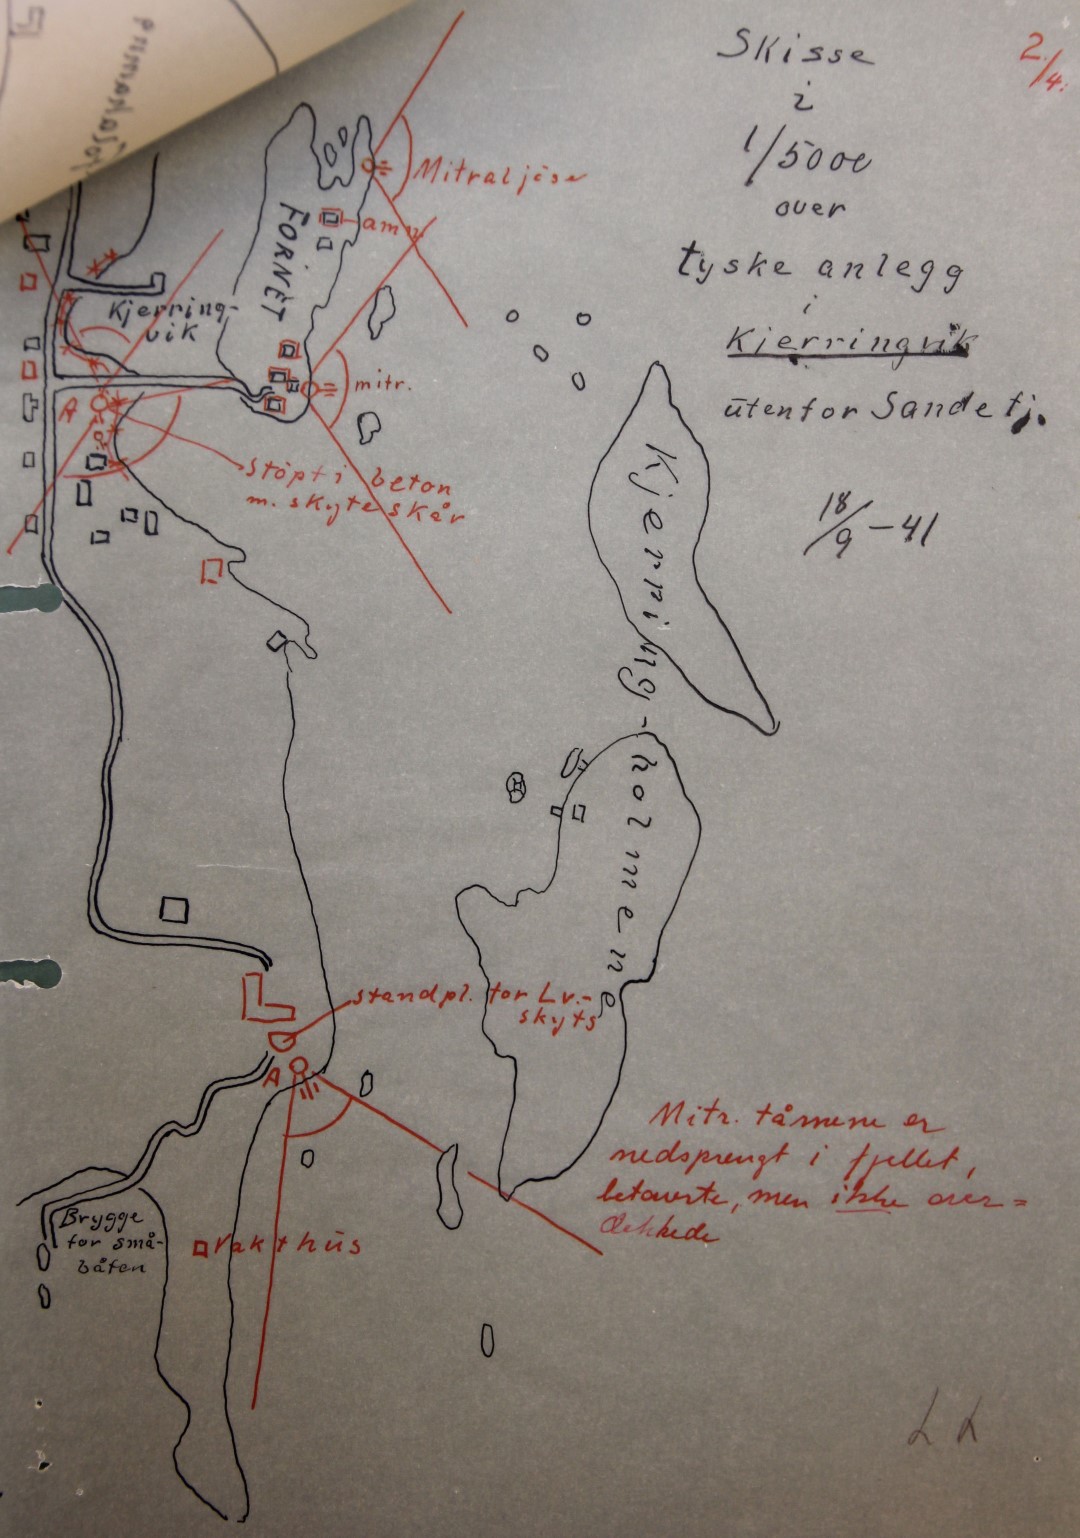 Skisse
i
1/5000
over
tyske anlegg
i
Kjerringvik
utenfor Sandefj.
18/9-41
2/4.
Mitraljöse
am.
FORNET
Kjerring-
vik
mitr.
A
Stöpt i beton
m. skyteskår
Kjerring-
holmene
standpl. for Lv.-
skyts
A
Mitr. tårnene er
nedsprengt i fjellet,
betonerte, men ikke over=
dekkede
Brygge
for små-
båten
Vakthus